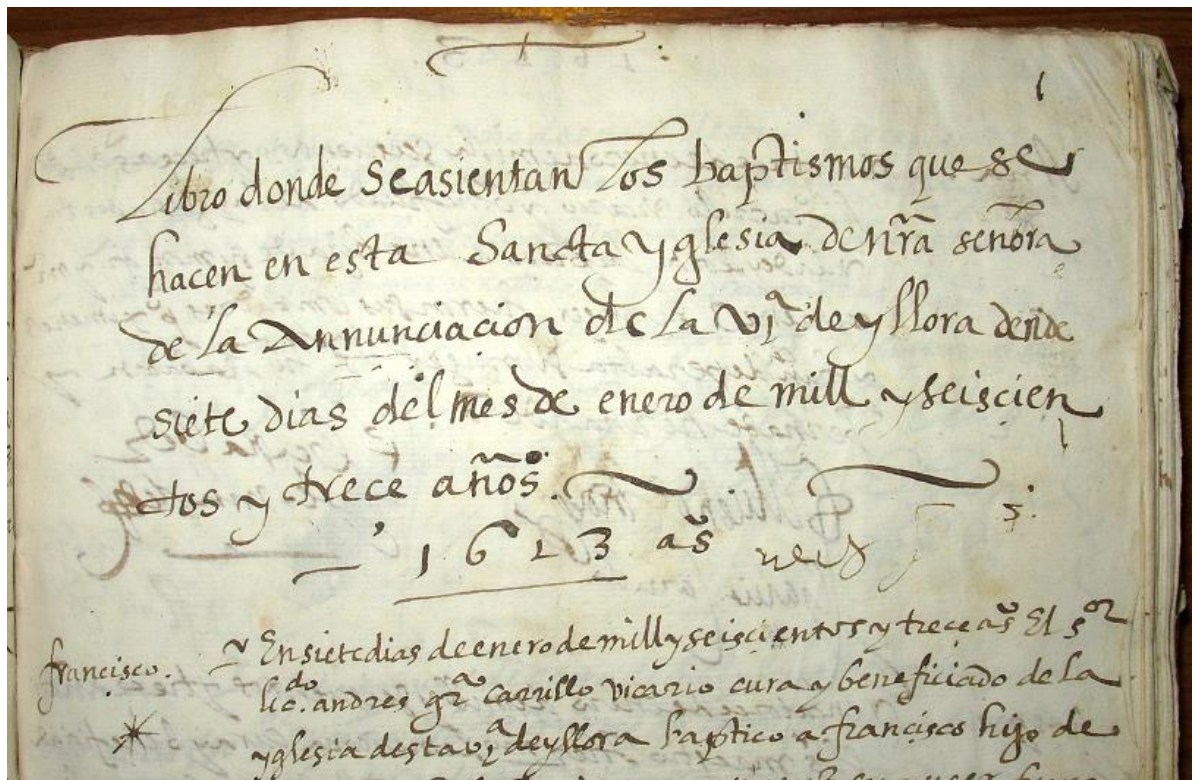 1
Libro donde Seasientan Los baptismos que se
hacen en esta Sancta yglesia de nrã señora
de la Annunciacion de La viª de yllora dende
siete dias del mes de enero de mill y seiscien
tos y trece años.
1613 as
francisco. En siete dias de enero de mill y seiscientos y trece as El sor
licdo. andres grª carrillo vicario cura y beneficiado de la
yglesia desta viª de yllora baptico a francisco hijo de